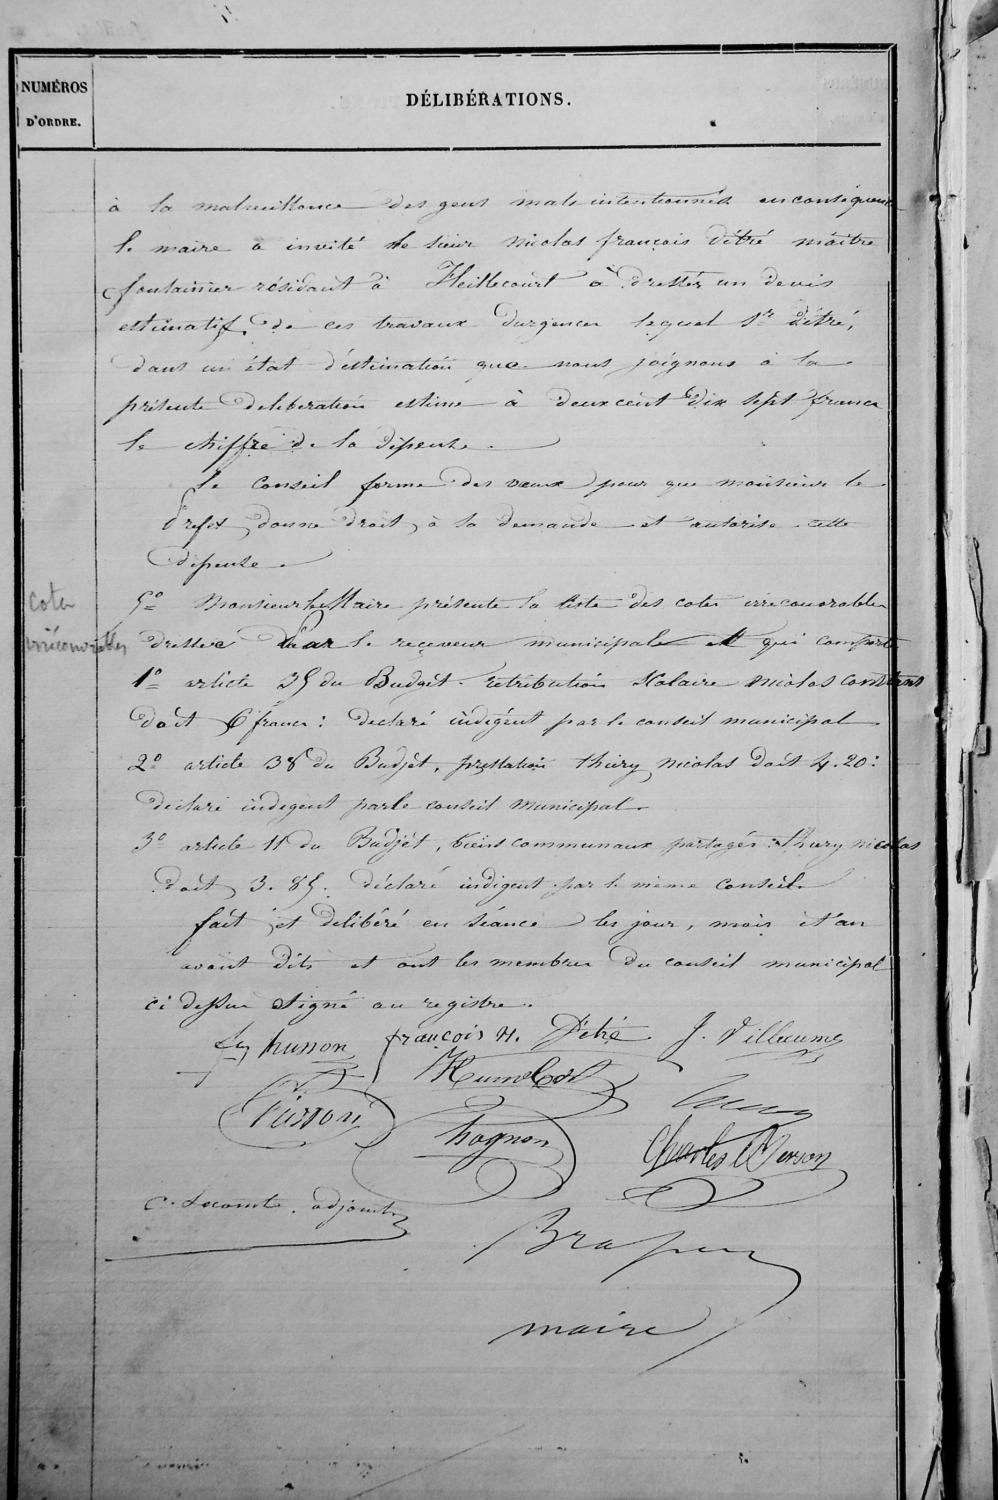 NUMÉROS
D'ORDRE.
DÉLIBÉRATIONS.
à la malveillance des gens mals intentionnés en conséquence
le maire a invité le sieur nicolas françois détré maitre
fontainier résidant à Heillecourt à dresser un devis
estimatif de ces travaux d'urgence lequel Sr détré,
dans un état d'éstimation que nous joignons à la
présente deliberation estime à deux cent dix sept francs
le chiffre de la dépense.
le conseil forme des vœux pour que monsieur le
Prefet donne droit à sa demande et autorise cette
dépense.
cotes
irrécouvrables
5º Monsieur le Maire présente la liste des cotes irrecouvrables
dressée par le receveur municipale et qui comporte
1º article 35 du Budget. retribution scolaire nicolas constant
doit 6 francs: declaré indigent par le conseil municipal
2º article 38 du Budjet, prestation thiery nicolas doit 4.20:
déclaré indegent par le conseil municipal
3º article 11 du Budjét, biens communaux partagés. thiery nicolas
doit 3.85. déclaré indigent par le même conseil.
fait et delibéré en séance les jour, mois et an
avant dits et ont les membres du conseil municipal
ci dessus signé au registre.
husson françois n. Détré J. Villaume
Humbert
Pierson
Thognon
Charles Pierson
C. Lecomte. adjoint
maire